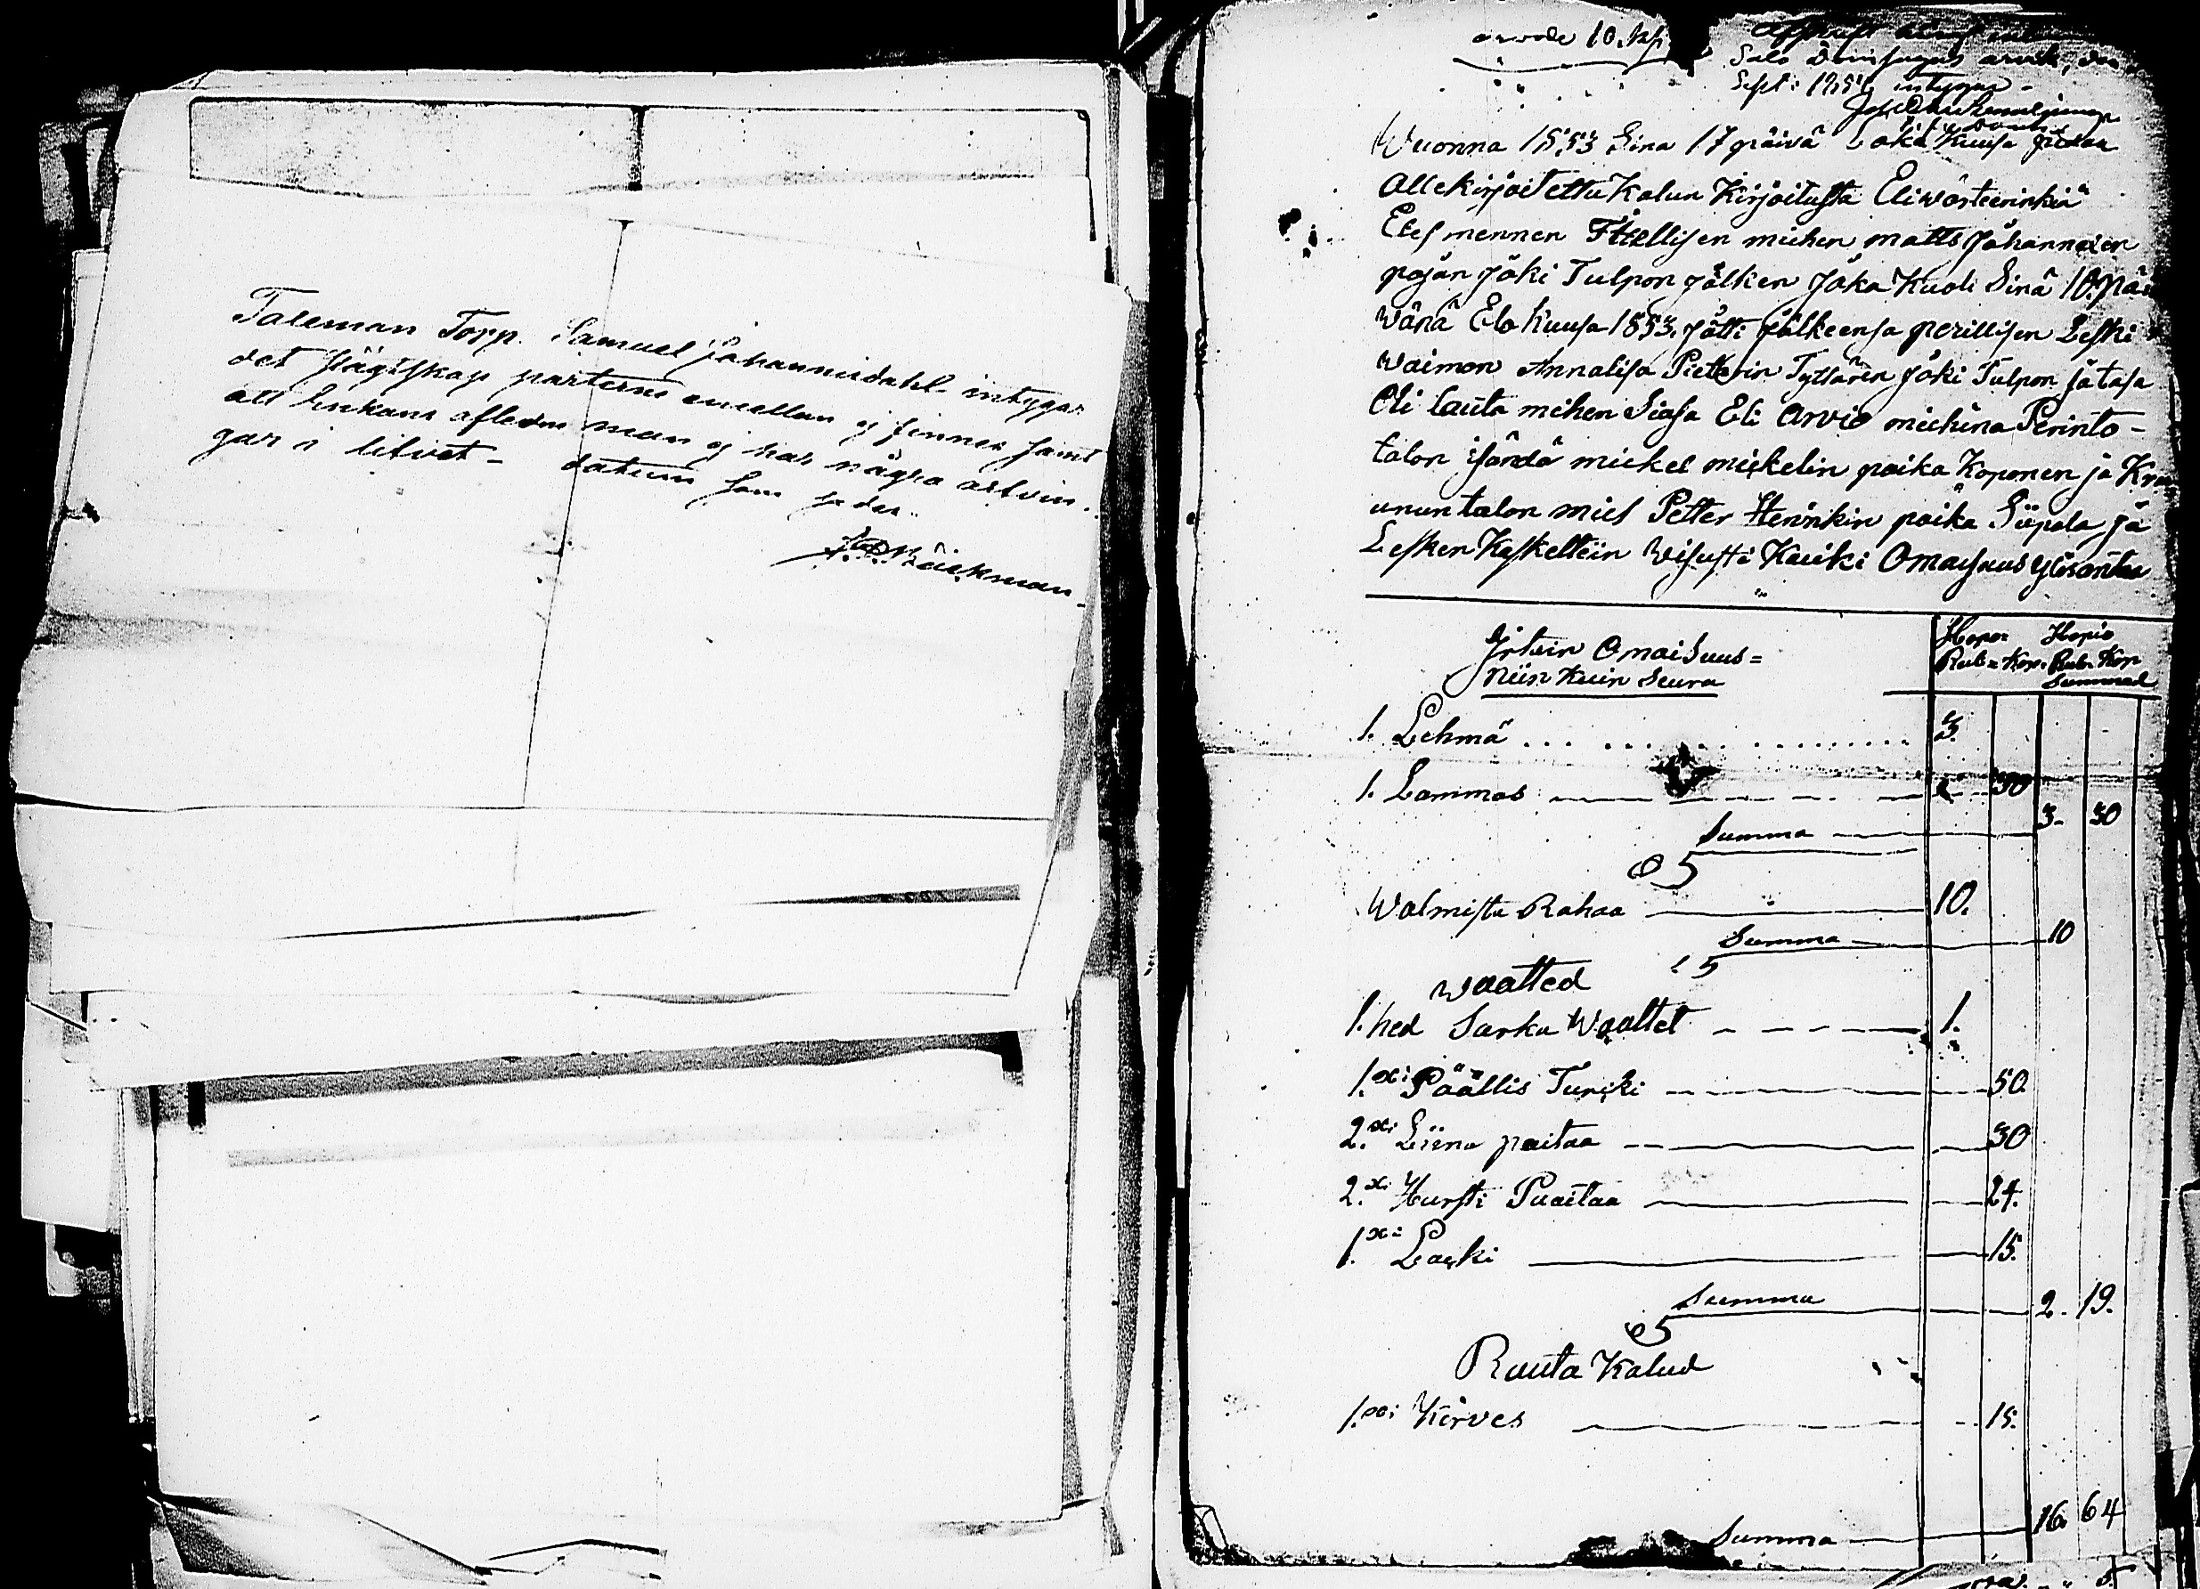 Taleman Torp. Samuel Johannisdahl intygar
det slägtskap parterne emellan ej finnes samt
att Enkans afledne man ej har några arfvin-
gar i lifvet - datum som sedes.
arvode 10. kp.
Salo Domsagas arvode, den
Sept: 1854 intygar -
Wuonna 1853 Sina 17 päivä Loka Kuusa pidän
Allekirjoitettu Kalun Kirjoitusta Eli wärteerinkiä
Edesmennen Itellisen miehen matts Johannexen
pojan Jöki Tulpon Jälken Joka Kuoli Sinä 10 päi
wänä Elo Kuusa 1853. Jätti Jälkeensa perillisen Leski
waimon Annalisa Pietterin Tyttären Jöki Tulpon Jätasa
Oli lauta mihen Siasa Eli Arvio miehinä Perinto-
talon isändä mickel mickelin poika Koponen ja Kru
unun talon mies Petter Heinrikin poika Siipola Jä
Lesken Käskettiin Wisusti Kaiki Omaisuus ylösantaa
Jrtain Omaisuus=
Niin Kuin Seura
Hopea Hopia
Rub= Kop. Rub. Kop
Summad
1. Lehmä 3.
1. Lammas 30
Summa 3- 30
Walmista Rahaa 10.
Summa 10
waatted
1. hed Sarka Waattet 1.
1. xi Päällis Turcki 50.
2. xi Liina paitaa 30
2. xi Hursti Puaitaa 24.
1. xi Lacki 15.
Summa 2. 19.
Rauta Kalud
1. xi Kirves 15.
Summa 16. 64